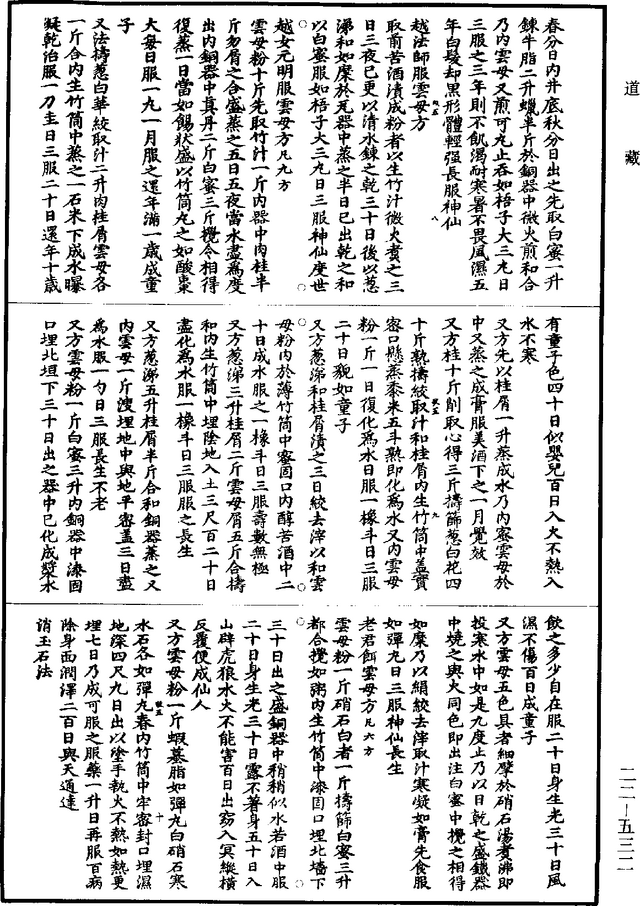 道藏
春分日內井底秋分日出之先取白蜜一升
鍊牛脂二升蠟半斤於銅器中微火煎和合
乃內雲母又煎可九止吞如梧子大三九日
三服之三年則不飢渴耐寒暑不畏風濕五
年白髮却黑形體輕强長服神仙
越法師服雲母方
取前苦酒漬成粉者以生竹汁微火煮之三
日三夜已更以清水鍊之乾三十日後以葱
涕和如糜於瓦器中蒸之半日已出乾之和
以白蜜服如梧子大三九日三服神仙度世
越女元明服雲母方凡九方
雲母粉十斤先取竹汁一斤內器中肉桂半
斤勿屑之合盛蒸之五日五夜當水盡爲度
出內銅器中真丹二斤白蜜三斤攪令相得
復蒸一日當如餳狀盛以竹筒丸之如酸棗
大每日服一九一月服之還年滿一歲成童
子
又法擣葱白華絞取汁二升肉桂屑雲母各
一斤合內生竹筒中蒸之一石米下成水曝
凝乾治服一刀圭日三服二十日還年十歲
有童子色四十日似嬰兒百日入火不熱入
水不寒
又方先以桂屑一升蒸成水乃內蜜雲母於
中又蒸之成膏服美酒下之一月覺效
又方桂十斤削取心得三斤擣篩葱白花四
十斤熟擣絞取汁和桂屑內生竹筒中蓋實
密口懸蒸黍米五斗熟即化爲水又內雲母
粉一斤一日復化爲水日服一橡斗日三服
二十日貌如童子
又方葱涕和桂屑漬之三日絞去滓以和雲
母粉內於薄竹筒中蜜固口內醇苦酒中二
十日成水服之一橡斗日三服壽數無極
又方葱涕三升桂屑二斤雲母屑五斤合擣
和內生竹筒中埋陰地入土三尺百二十日
盡化為水服一橡斗日三服服之長生
又方葱涕五升桂屑半斤合和銅器蒸之又
內雲母一斤溲埋地中與地平密蓋三日盡
爲水服一勺日三服長生不老
又方雲母粉一斤白蜜三升內銅器中漆固
口埋北垣下三十日出之器中已化成漿水
飲之多少自在服二十日身生光三十日風
濕不傷百日成童子
又方雲母五色具者細擘於硝石湯煮沸即
投寒水中如是九度止乃以日乾之盛鐵器
中燒之與火同色即出注白蜜中攪之相得
如糜乃以絹絞去滓取汁寒凝如膏先食服
如彈九日三服神仙長生
老君餌雲母方凡六方
雲母粉一斤硝石白者一斤擣篩白蜜三升
都合攪如粥內生竹筒中漆固口埋北墻下
三十日出之盛銅器中稍稍似水若酒中服
二十日身生光三十日露不著身五十日入
山辟虎狼水火不能害百日出窈入冥縱橫
反覆便成仙人
又方雲母粉一斤蝦蟇脂如彈丸白硝石寒
水石各如彈九舂內竹筒中牢密封口埋濕
地深四尺九日出以塗手執火不熱如熱更
埋七日乃成可服之服藥一升日再服百病
除身面潤澤二百日與天通達
消玉石法
二二—五三二